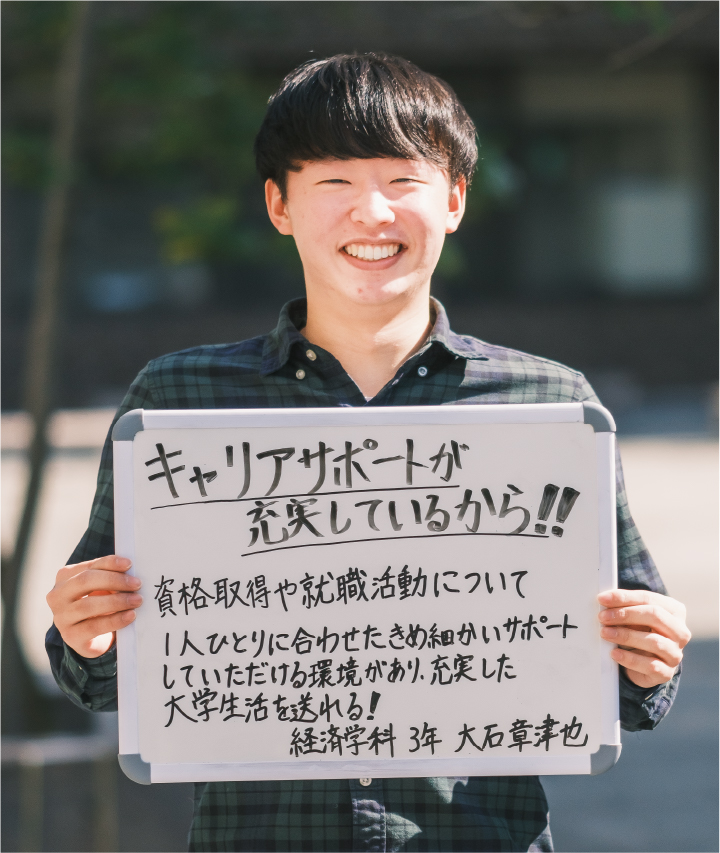 キャリアサポートが
充実しているから!!
資格取得や就職活動について
1人ひとりに合わせたきめ細かいサポート
していただける環境があり、充実した
大学生活を送れる!
経済学科 3年 大石章津也